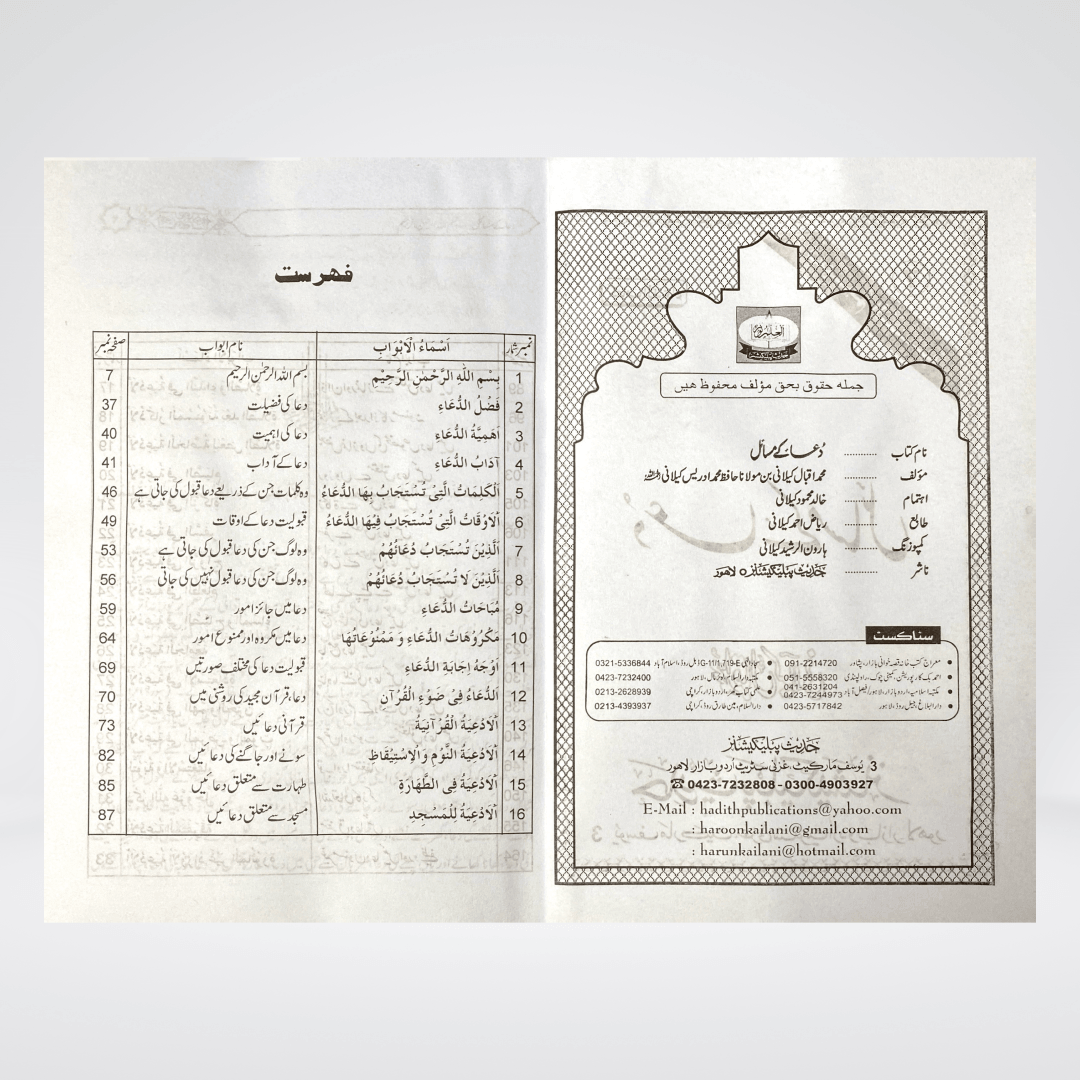 جملہ حقوق بحق مؤلف محفوظ ھیں
نام کتاب ............ دُعا کے مسائل
مؤلف ............ محمد اقبال کیلانی بن مولانا حافظ محمد ادریس کیلانی
اہتمام ............ خالد محمود کیلانی
طابع ............ ریاض احمد کیلانی
کمپوزنگ ............ ہارون الرشید کیلانی
ناشر ............ حدیث پبلیکیشنز لاہور
سٹاکسٹ
• معراج کتب خانہ قصہ خوانی بازار، پشاور 091-2214720
• احمد بک کارپوریشن، کمیٹی چوک، راولپنڈی 051-5558320
• مکتبہ اسلامیہ، اردو بازار، لاہور/فیصل آباد 041-2631204 0423-7244973
• دارالبلاغ، جیل روڈ، لاہور 0423-5717842
• G-11/1,719-E، اسلام آباد 0321-5336844
• مکتبہ دارالسلام، لوئر مال، لاہور 0423-7232400
• علمی کتاب گھر، اردو بازار، کراچی 0213-2628939
• دارالسلام، مین طارق روڈ، کراچی 0213-4393937
حدیث پبلیکیشنز
3 یوسف مارکیٹ، غزنی سٹریٹ اردو بازار لاہور
☎ 0423-7232808 - 0300-4903927
E-Mail : hadithpublications@yahoo.com
: haroonkailani@gmail.com
: harunkailani@hotmail.com
فہرست
نمبر شمار اَسْمَاءُ الْاَبْوَابِ نام ابواب صفحہ نمبر
1 بِسْمِ اللّٰهِ الرَّحْمٰنِ الرَّحِيْمِ بسم اللہ الرحمٰن الرحیم 7
2 فَضْلُ الدُّعَاءِ دعا کی فضیلت 37
3 اَهَمِيَّةُ الدُّعَاءِ دعا کی اہمیت 40
4 آدَابُ الدُّعَاءِ دعا کے آداب 41
5 اَلْكَلِمَاتُ الَّتِىْ تُسْتَجَابُ بِهَا الدُّعَاءُ وہ کلمات جن کے ذریعے دعا قبول کی جاتی ہے 46
6 اَلْاَوْقَاتُ الَّتِىْ تُسْتَجَابُ فِيْهَا الدُّعَاءُ قبولیت دعا کے اوقات 49
7 اَلَّذِيْنَ تُسْتَجَابُ دُعَائُهُمْ وہ لوگ جن کی دعا قبول کی جاتی ہے 53
8 اَلَّذِيْنَ لَا تُسْتَجَابُ دُعَائُهُمْ وہ لوگ جن کی دعا قبول نہیں کی جاتی 56
9 مُبَاحَاتُ الدُّعَاءِ دعا میں جائز امور 59
10 مَكْرُوْهَاتُ الدُّعَاءِ وَ مَمْنُوْعَاتُهَا دعا میں مکروہ اور ممنوع اُمور 64
11 اَوْجُهُ اِجَابَةِ الدُّعَاءِ قبولیت دعا کی مختلف صورتیں 69
12 اَلدُّعَاءُ فِىْ ضَوْءِ الْقُرْآنِ دعا، قرآن مجید کی روشنی میں 70
13 اَلْاَدْعِيَةُ الْقُرْآنِيَةُ قرآنی دعائیں 73
14 اَلْاَدْعِيَةُ النَّوْمِ وَالْاِسْتِيْقَاظِ سونے اور جاگنے کی دعائیں 82
15 اَلْاَدْعِيَةُ فِى الطَّهَارَةِ طہارت سے متعلق دعائیں 85
16 اَلْاَدْعِيَةُ لِلْمَسْجِدِ مسجد سے متعلق دعائیں 87